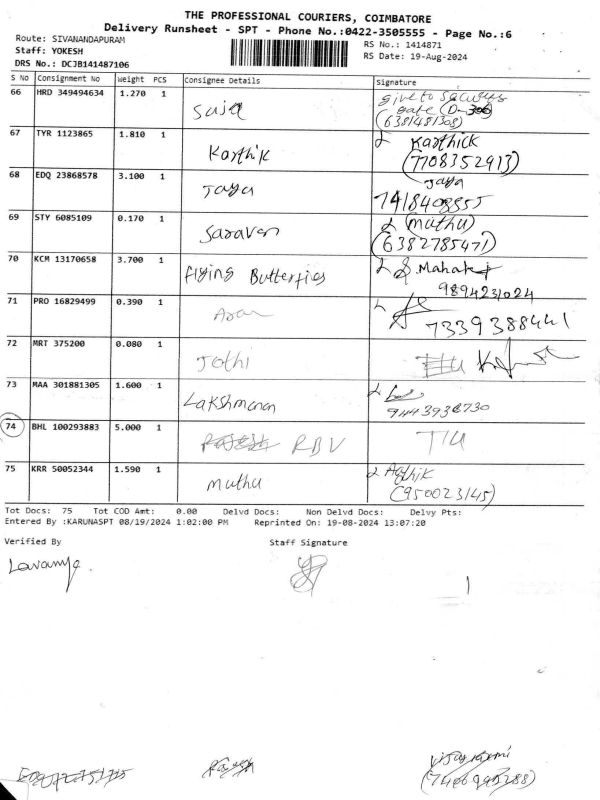 THE PROFESSIONAL COURIERS, COIMBATORE
Delivery Runsheet - SPT - Phone No.:0422-3505555 - Page No.:6
Route: SIVANANDAPURAM
Staff: YOKESH
DRS No.: DCJB141487106
RS No.: 1414871
RS Date: 19-Aug-2024
S No Consignment No Weight PCS Consignee Details Signature
66 HRD 349494634 1.270 1 give to
gate
(6381481308)
67 TYR 1123865 1.810 1 Karthik Karthick
(7708352913)
68 EDQ 23868578 3.100 1 Jaya Jaya
7418408555
69 STY 6085109 0.170 1 Saravan (Muthu)
(6382785471)
70 KCM 13170658 3.700 1 Flying Butterflies
9894231024
71 PRO 16829499 0.390 1
7339388441
72 MRT 375200 0.080 1 Jothi
73 MAA 301881305 1.600 1 Lakshmanan
9443938730
74 BHL 100293883 5.000 1 RBV
75 KRR 50052344 1.590 1 Muthu
(950023145)
Tot Docs: 75 Tot COD Amt: 0.00 Delvd Docs: Non Delvd Docs: Delvy Pts:
Entered By :KARUNASPT 08/19/2024 1:02:00 PM Reprinted On: 19-08-2024 13:07:20
Verified By Staff Signature
Lavanya.